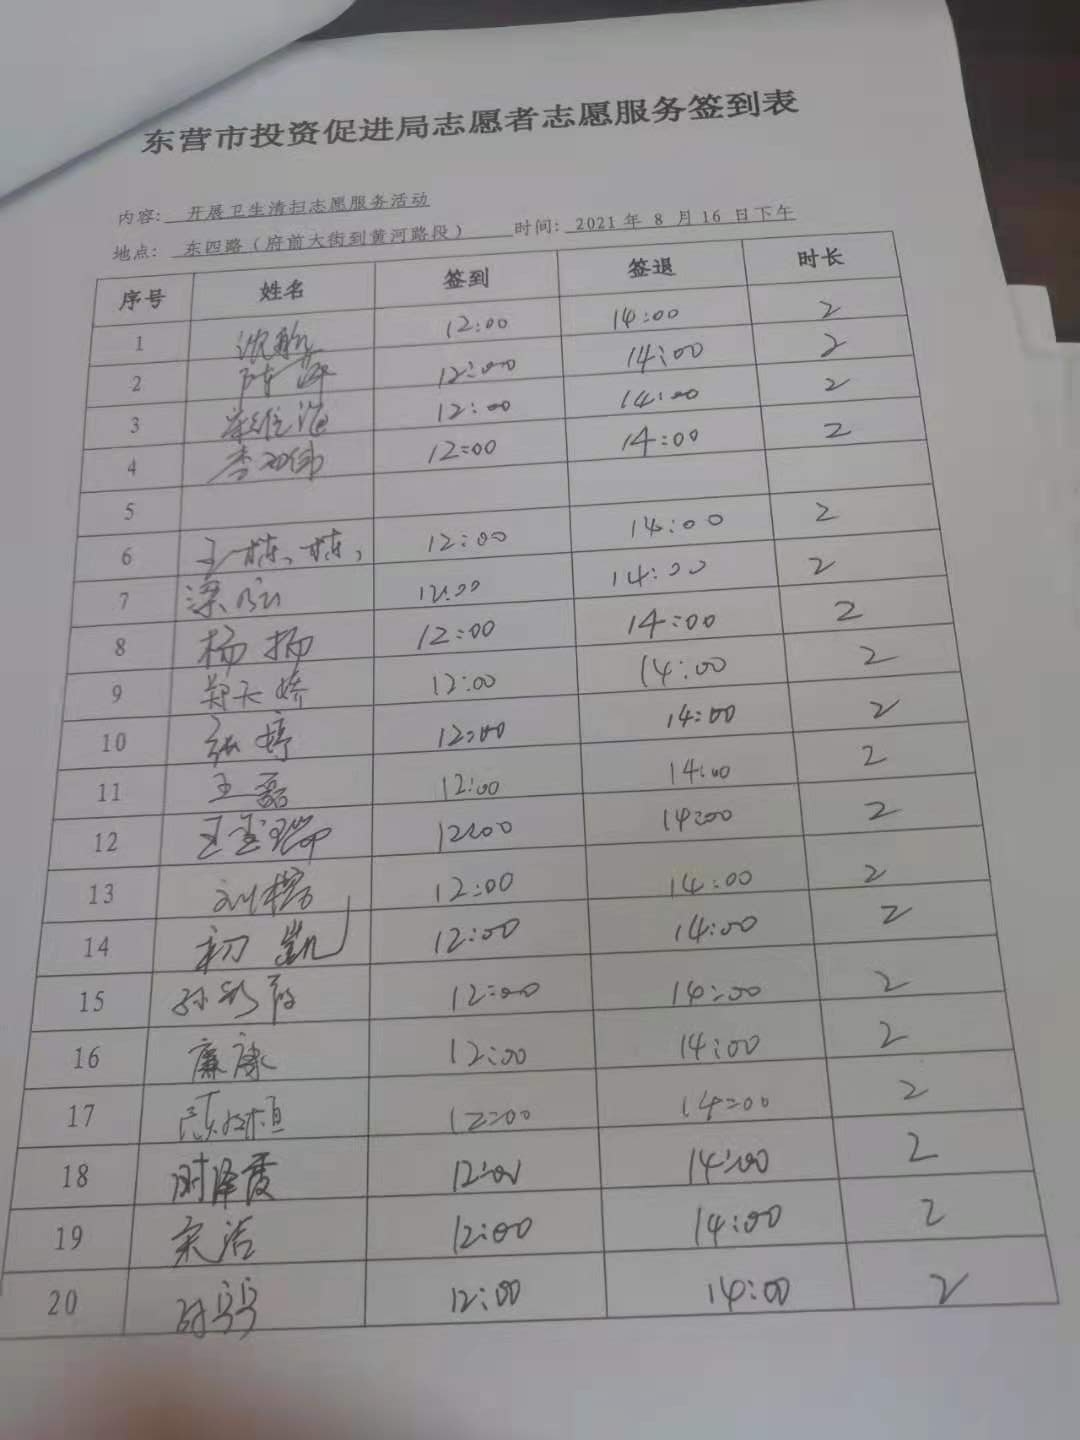 东营市投资促进局志愿者志愿服务签到表
内容: 开展卫生清扫志愿服务活动
地点: 东四路（府前大街到黄河路段） 时间: 2021 年 8 月 16 日下午
序号 姓名 签到 签退 时长
1 12:00 14:00 2
2 12:00 14:00 2
3 12:00 14:00 2
4 12:00 14:00 2
5
6 王栋栋 12:00 14:00 2
7 12:00 14:00 2
8 杨扬 12:00 14:00 2
9 郑天娇 12:00 14:00 2
10 张婷 12:00 14:00 2
11 王磊 12:00 14:00 2
12 12:00 14:00 2
13 12:00 14:00 2
14 初凯 12:00 14:00 2
15 12:00 14:00 2
16 廉康 12:00 14:00 2
17 12:00 14:00 2
18 时泽霞 12:00 14:00 2
19 宋洁 12:00 14:00 2
20 12:00 14:00 2